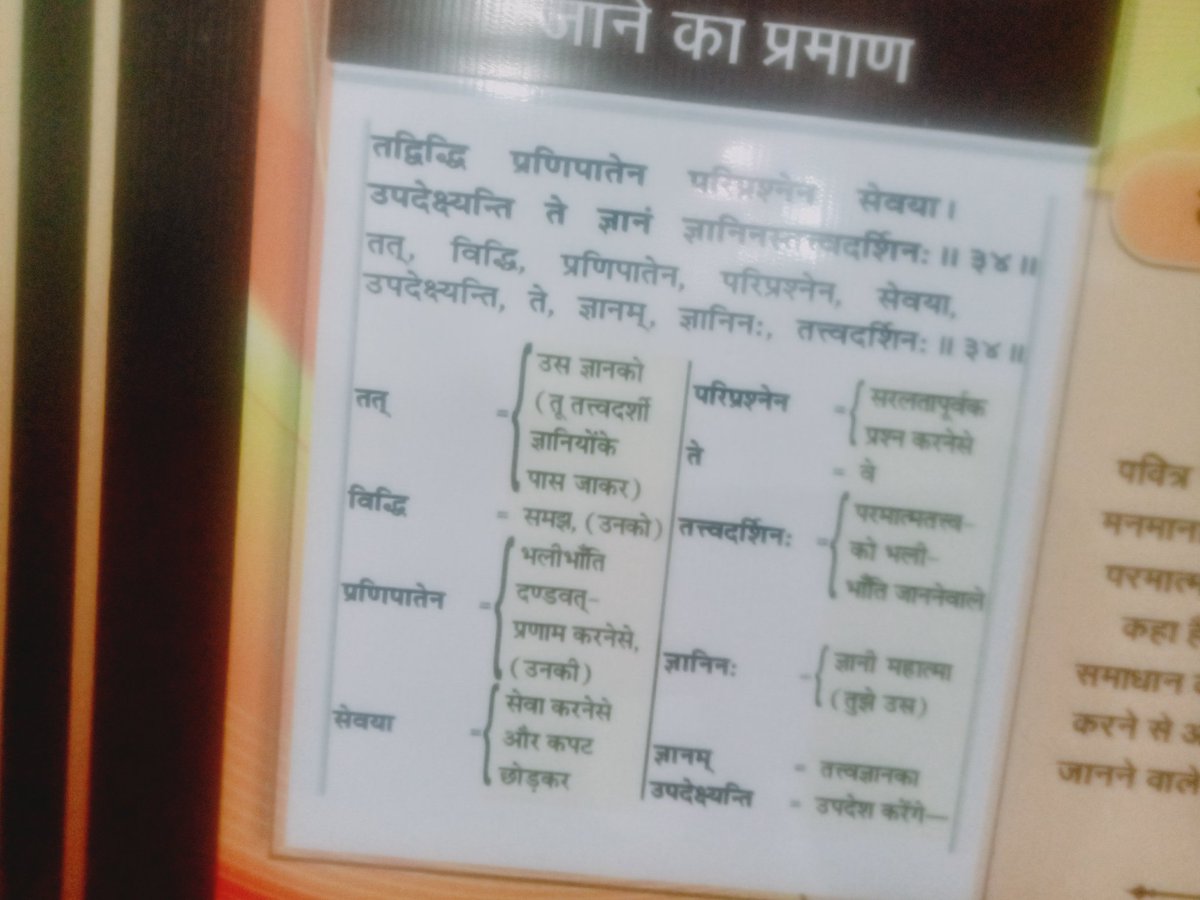 जाने का प्रमाण
तद्विद्धि प्रणिपातेन परिप्रश्नेन सेवया।
उपदेक्ष्यन्ति ते ज्ञानं ज्ञानिनस्तत्त्वदर्शिनः॥ ३४॥
तत्, विद्धि, प्रणिपातेन, परिप्रश्नेन, सेवया,
उपदेक्ष्यन्ति, ते, ज्ञानम्, ज्ञानिनः, तत्त्वदर्शिनः॥ ३४॥
तत् = उस ज्ञानको
(तू तत्त्वदर्शी
ज्ञानियोंके
पास जाकर)
विद्धि = समझ, (उनको)
प्रणिपातेन = भलीभाँति
दण्डवत्-
प्रणाम करनेसे,
(उनकी)
सेवया = सेवा करनेसे
और कपट
छोड़कर
परिप्रश्नेन = सरलतापूर्वक
प्रश्न करनेसे
ते = वे
तत्त्वदर्शिनः = परमात्मतत्त्व-
को भली-
भाँति जाननेवाले
ज्ञानिनः = ज्ञानी महात्मा
(तुझे उस)
ज्ञानम् = तत्त्वज्ञानका
उपदेक्ष्यन्ति = उपदेश करेंगे—
पवित्र
मनमान
परमात्म
कहा है
समाधान
करने से
जानने वाले